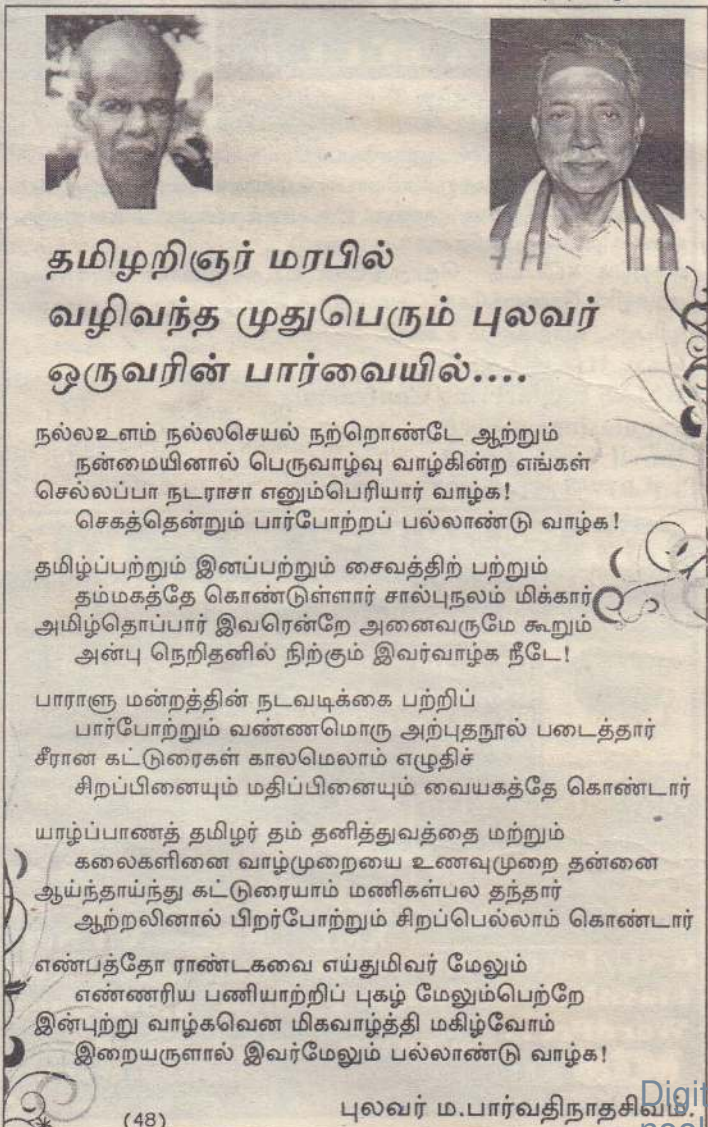 தமிழறிஞர் மரபில்
வழிவந்த முதுபெரும் புலவர்
ஒருவரின் பார்வையில்....
நல்லஉளம் நல்லசெயல் நற்றொண்டே ஆற்றும்
நன்மையினால் பெருவாழ்வு வாழ்கின்ற எங்கள்
செல்லப்பா நடராசா எனும்பெரியார் வாழ்க!
செகத்தென்றும் பார்போற்றப் பல்லாண்டு வாழ்க!
தமிழ்ப்பற்றும் இனப்பற்றும் சைவத்திற் பற்றும்
தம்மகத்தே கொண்டுள்ளார் சால்புநலம் மிக்கார்
அமிழ்தொப்பார் இவரென்றே அனைவருமே கூறும்
அன்பு நெறிதனில் நிற்கும் இவர்வாழ்க நீடே!
பாராளு மன்றத்தின் நடவடிக்கை பற்றிப்
பார்போற்றும் வண்ணமொரு அற்புதநூல் படைத்தார்
சீரான கட்டுரைகள் காலமெலாம் எழுதிச்
சிறப்பினையும் மதிப்பினையும் வையகத்தே கொண்டார்
யாழ்ப்பாணத் தமிழர் தம் தனித்துவத்தை மற்றும்
கலைகளினை வாழ்முறையை உணவுமுறை தன்னை
ஆய்ந்தாய்ந்து கட்டுரையாம் மணிகள்பல தந்தார்
ஆற்றலினால் பிறர்போற்றும் சிறப்பெல்லாம் கொண்டார்
எண்பத்தோ ராண்டகவை எய்துமிவர் மேலும்
எண்ணரிய பணியாற்றிப் புகழ் மேலும்பெற்றே
இன்புற்று வாழ்கவென மிகவாழ்த்தி மகிழ்வோம்
இறையருளால் இவர்மேலும் பல்லாண்டு வாழ்க!
புலவர் ம.பார்வதிநாதசிவம்.
(48)
Digit